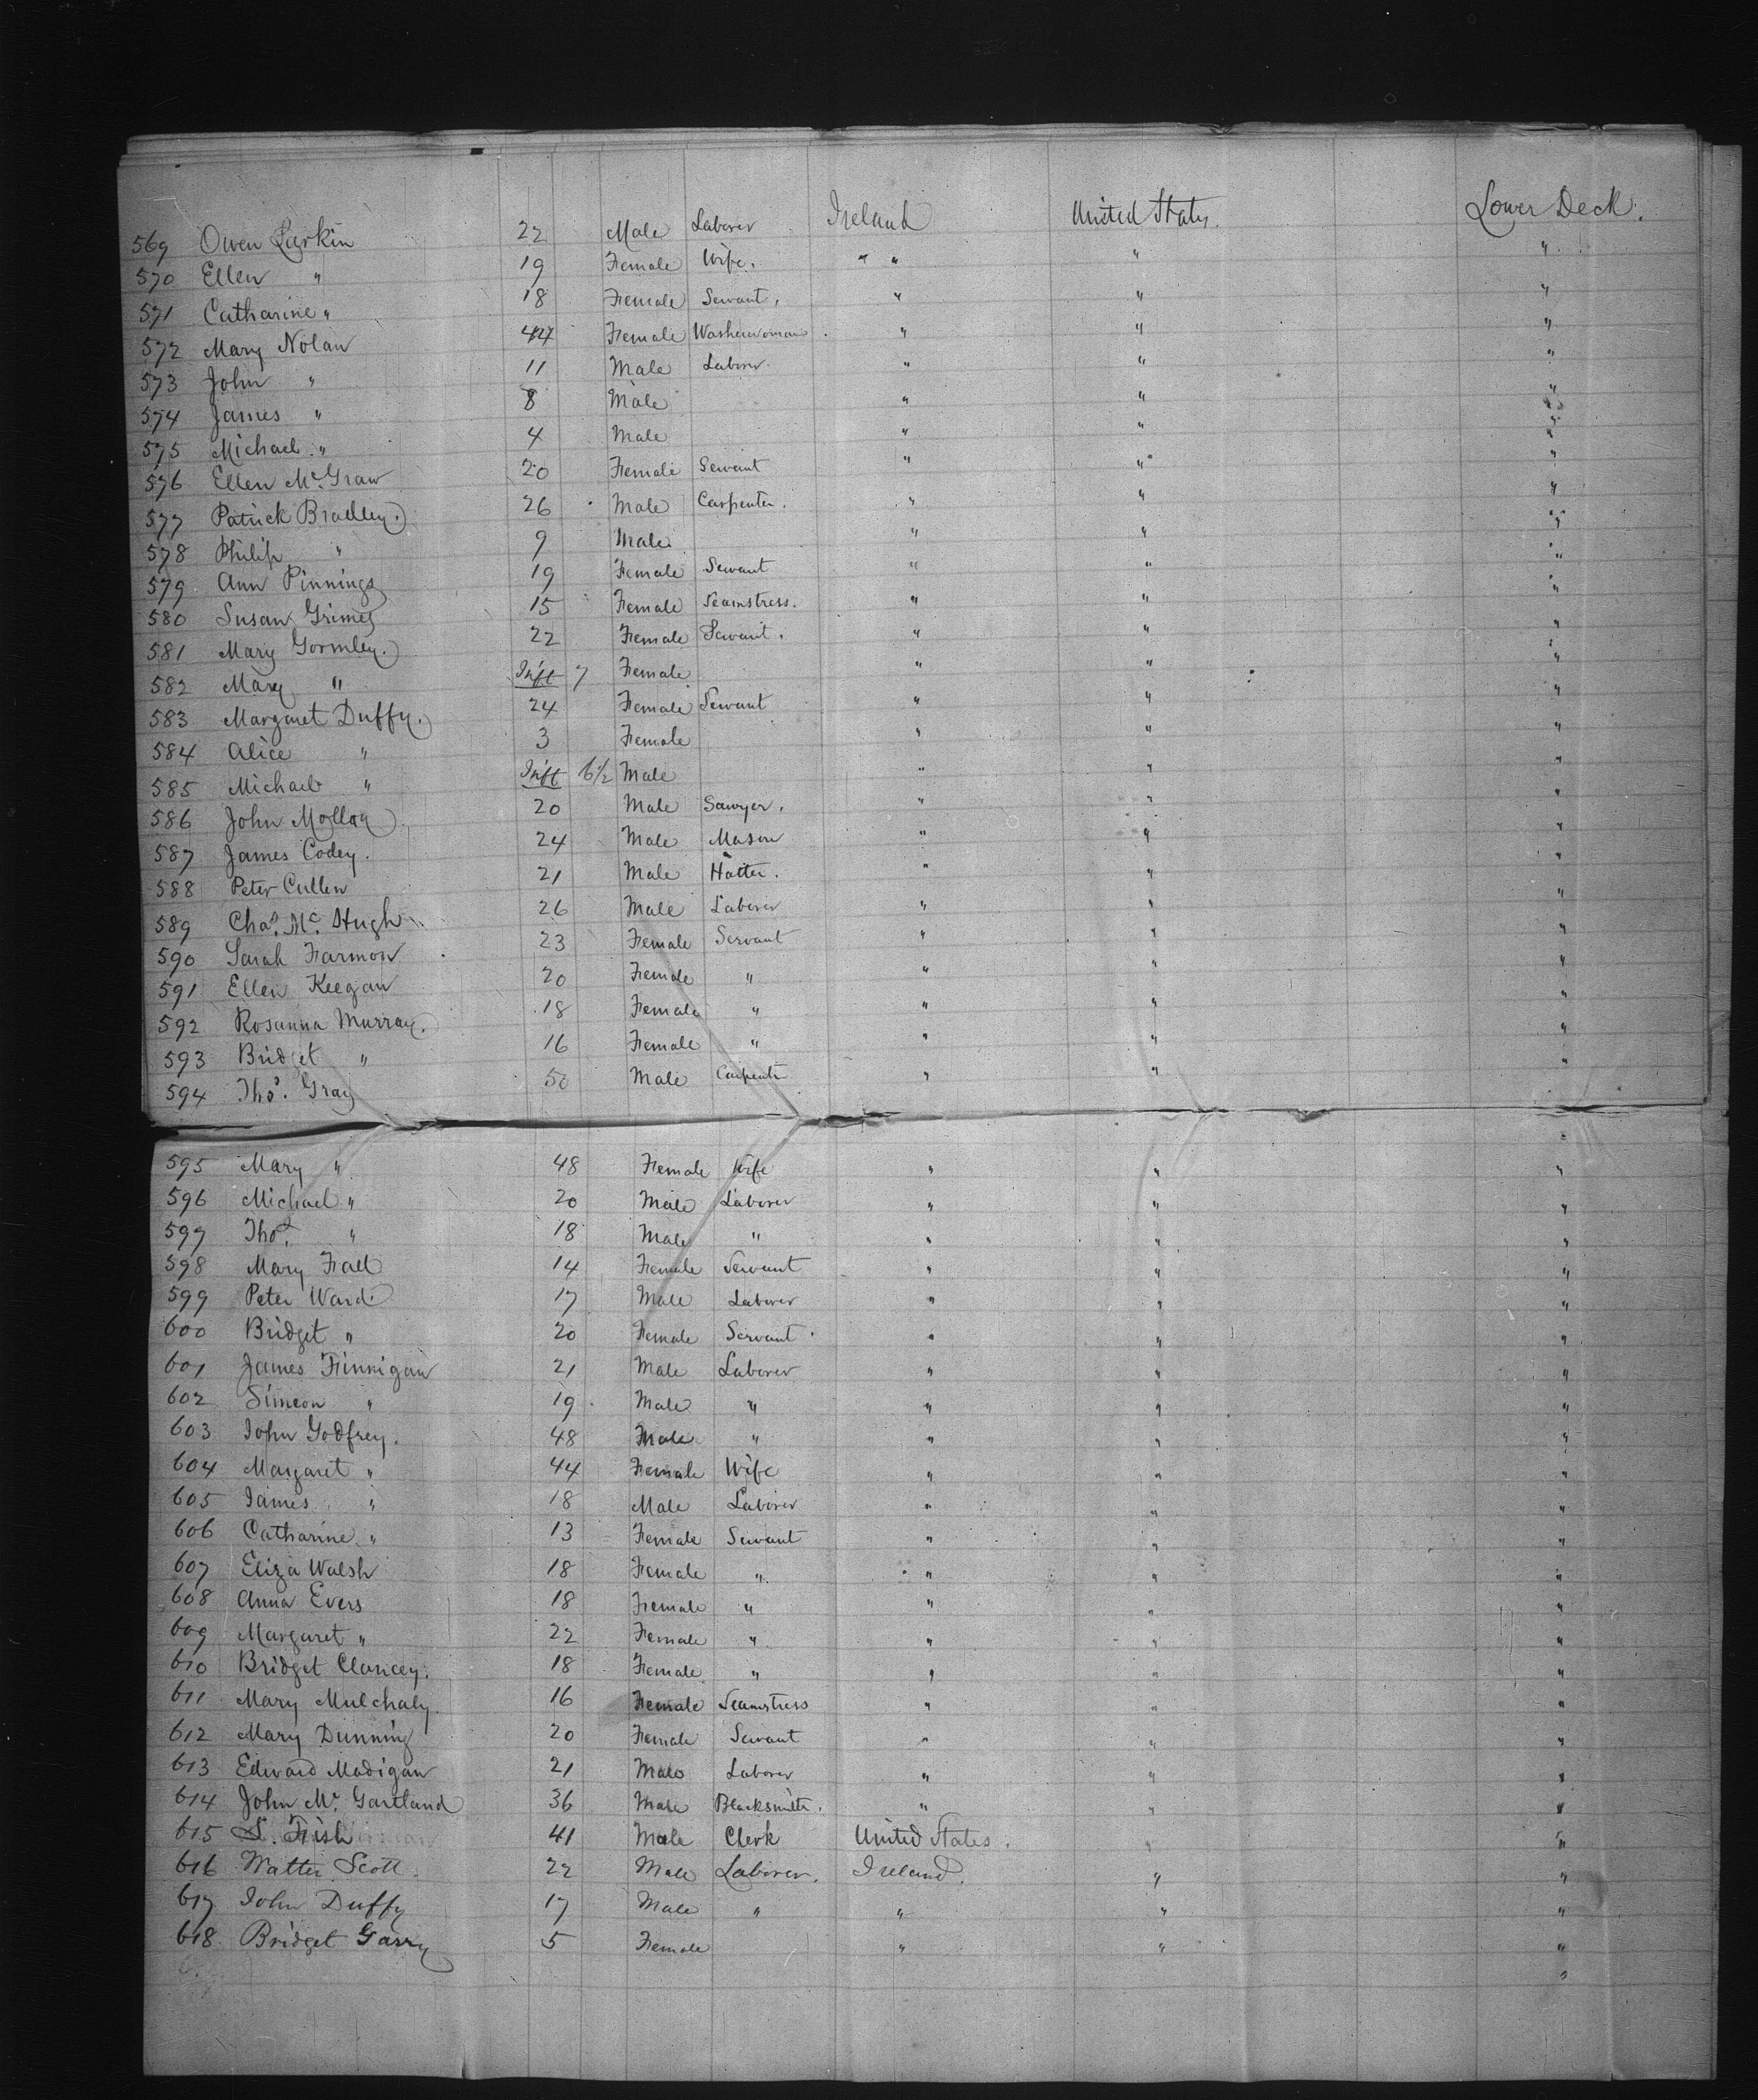 569 Owen Larkin 22 Male Laborer Ireland United States. Lower Deck.
570 Ellen " 19 Female Wife. " " " "
571 Catharine " 18 Female Servant. " " "
572 Mary Nolan 44 Female Washerwoman " " "
573 John " 11 Male Laborer " " "
574 James " 8 Male " " "
575 Michael " 4 Male " " "
576 Ellen McGraw 20 Female Servant " " "
577 Patrick Bradley. 26 Male Carpenter. " " "
578 Philip " 9 Male " " "
579 Ann Pinnings 19 Female Servant " " "
580 Susan Grimes 15 Female Seamstress. " " "
581 Mary Gormley. 22 Female Servant. " " "
582 Mary " Inft 7 Female " " "
583 Margaret Duffy. 24 Female Servant " " "
584 Alice " 3 Female " " "
585 Michael " Inft 6½ Male " " "
586 John Molloy 20 Male Sawyer. " " "
587 James Codey. 24 Male Mason " " "
588 Peter Cullen 21 Male Hatter. " " "
589 Chas. Mc.Hugh 26 Male Laborer " " "
590 Sarah Farmon 23 Female Servant " " "
591 Ellen Keegan 20 Female " " " "
592 Rosanna Murray. 18 Female " " " "
593 Bridget " 16 Female " " " "
594 Thos. Gray 50 Male Carpenter " " "
595 Mary " 48 Female Wife " " "
596 Michael " 20 Male Laborer " " "
597 Thos. " 18 Male " " " "
598 Mary Fall 14 Female Servant " " "
599 Peter Ward 17 Male Laborer " " "
600 Bridget " 20 Female Servant " " "
601 James Finnigan 21 Male Laborer " " "
602 Simeon " 19 Male " " " "
603 John Godfrey. 48 Male " " " "
604 Margaret " 44 Female Wife " " "
605 James " 18 Male Laborer " " "
606 Catharine " 13 Female Servant " " "
607 Eliza Walsh 18 Female " " " "
608 Anna Evers 18 Female " " " "
609 Margaret " 22 Female " " " "
610 Bridget Clancey. 18 Female " " " "
611 Mary Mulchaly 16 Female Seamstress " " "
612 Mary Dunning 20 Female Servant " " "
613 Edward Madigan 21 Male Laborer " " "
614 John Mc.Gartland 36 Male Blacksmith. " " "
615 S. Fish 41 Male Clerk United States. " "
616 Walter Scott. 22 Male Laborer. Ireland. " "
617 John Duffy 17 Male " " " "
618 Bridget Garry 5 Female " " "
"